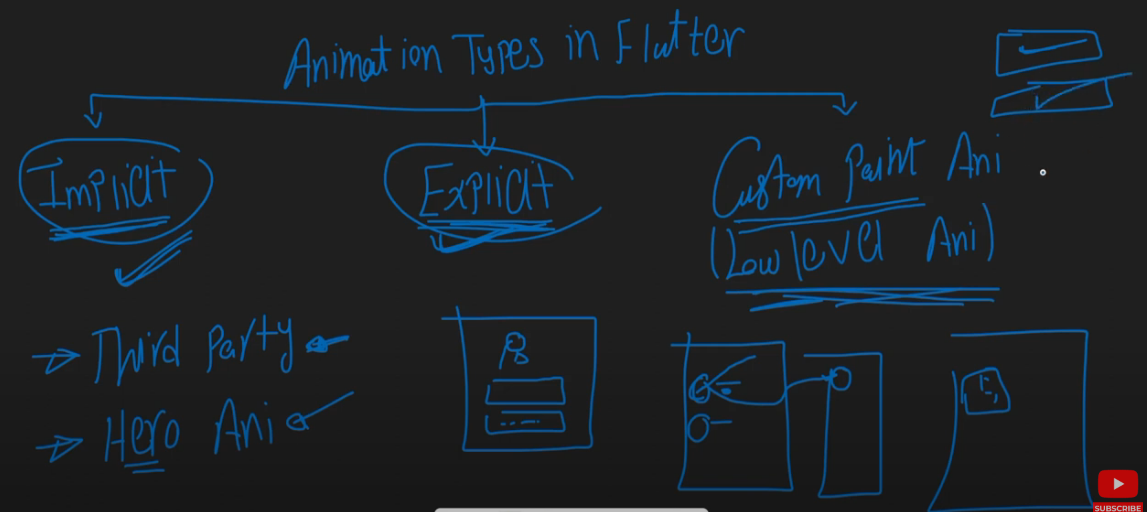 Animation Types in Flutter
Implicit
Explicit
Custom Paint Ani
(Low level Ani)
→ Third Party
→ Hero Ani
SUBSCRIBE